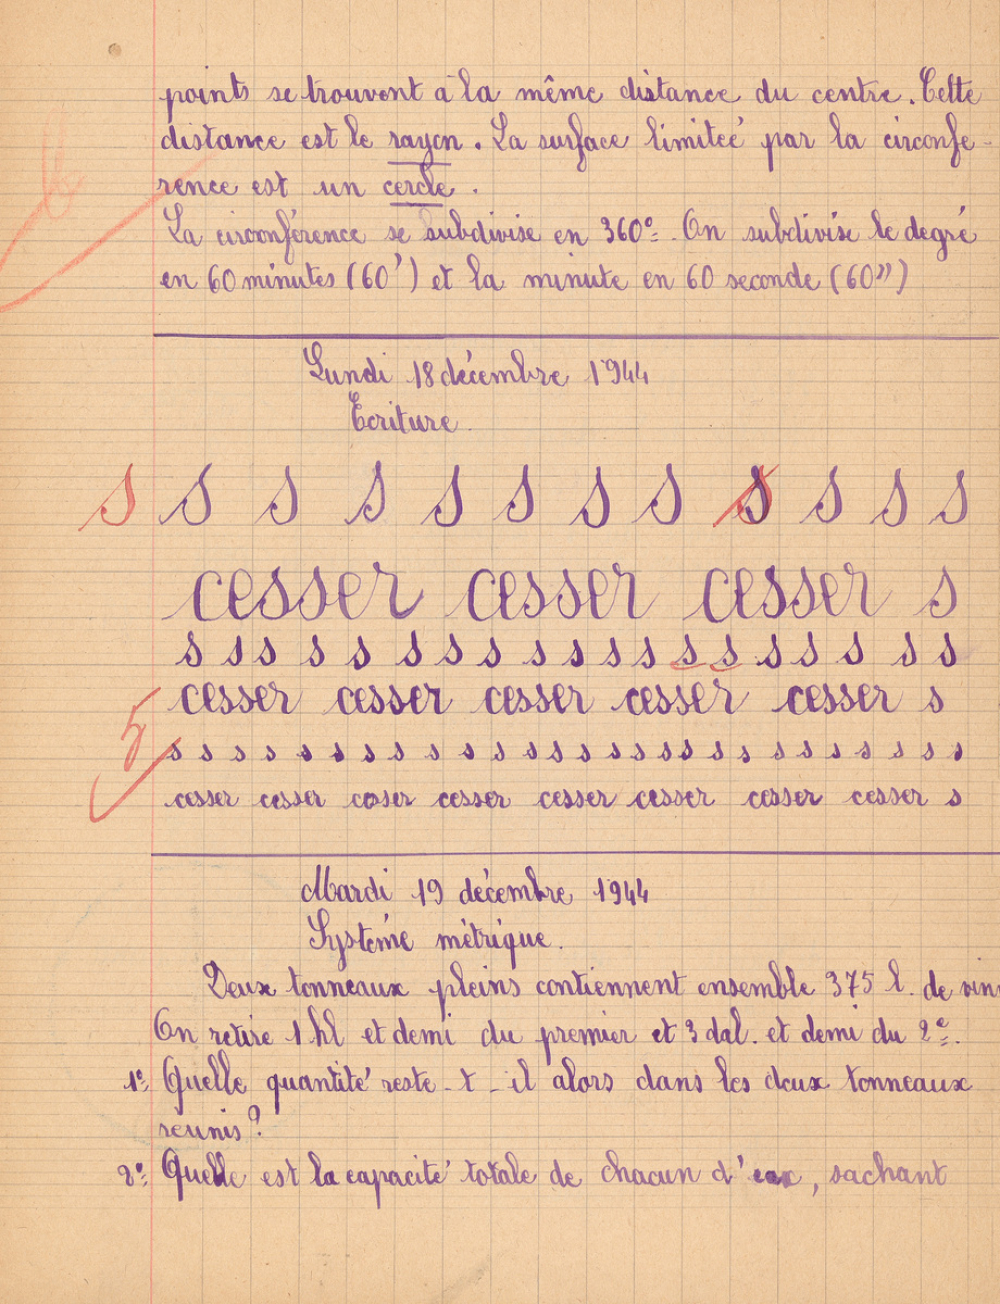 points se trouvent à la même distance du centre. Cette
distance est le rayon. La surface limiteé par la circonfe-
rence est un cercle.
La circonférence se subdivise en 360°. On subdivise le degré
en 60 minutes (60') et la minute en 60 seconde (60'')
Lundi 18 décembre 1944
Ecriture.
s s s s s s s s s s s s
cesser cesser cesser s
s s s s s s s s s s s s s s s s s s s
cesser cesser cesser cesser cesser s
5
s s s s s s s s s s s s s s s s s s s s s s s s s s
cesser cesser cesser cesser cesser cesser cesser cesser s
Mardi 19 décembre 1944
Système métrique.
Deux tonneaux pleins contiennent ensemble 375 l. de vin
On retire 1 hl et demi du premier et 3 dal. et demi du 2e.
1° Quelle quantité reste-t-il alors dans les deux tonneaux
reunis?
2° Quelle est la capacité totale de chacun d'eux, sachant